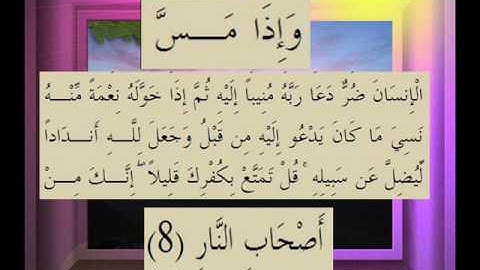 وَإِذَا مَسَّ
الْإِنسَانَ ضُرٌّ دَعَا رَبَّهُ مُنِيباً إِلَيْهِ ثُمَّ إِذَا خَوَّلَهُ نِعْمَةً مِّنْهُ
نَسِيَ مَا كَانَ يَدْعُو إِلَيْهِ مِن قَبْلُ وَجَعَلَ لِلَّهِ أَندَاداً
لِّيُضِلَّ عَن سَبِيلِهِ ۚ قُلْ تَمَتَّعْ بِكُفْرِكَ قَلِيلاً ۖ إِنَّكَ مِنْ
أَصْحَابِ النَّارِ (8)